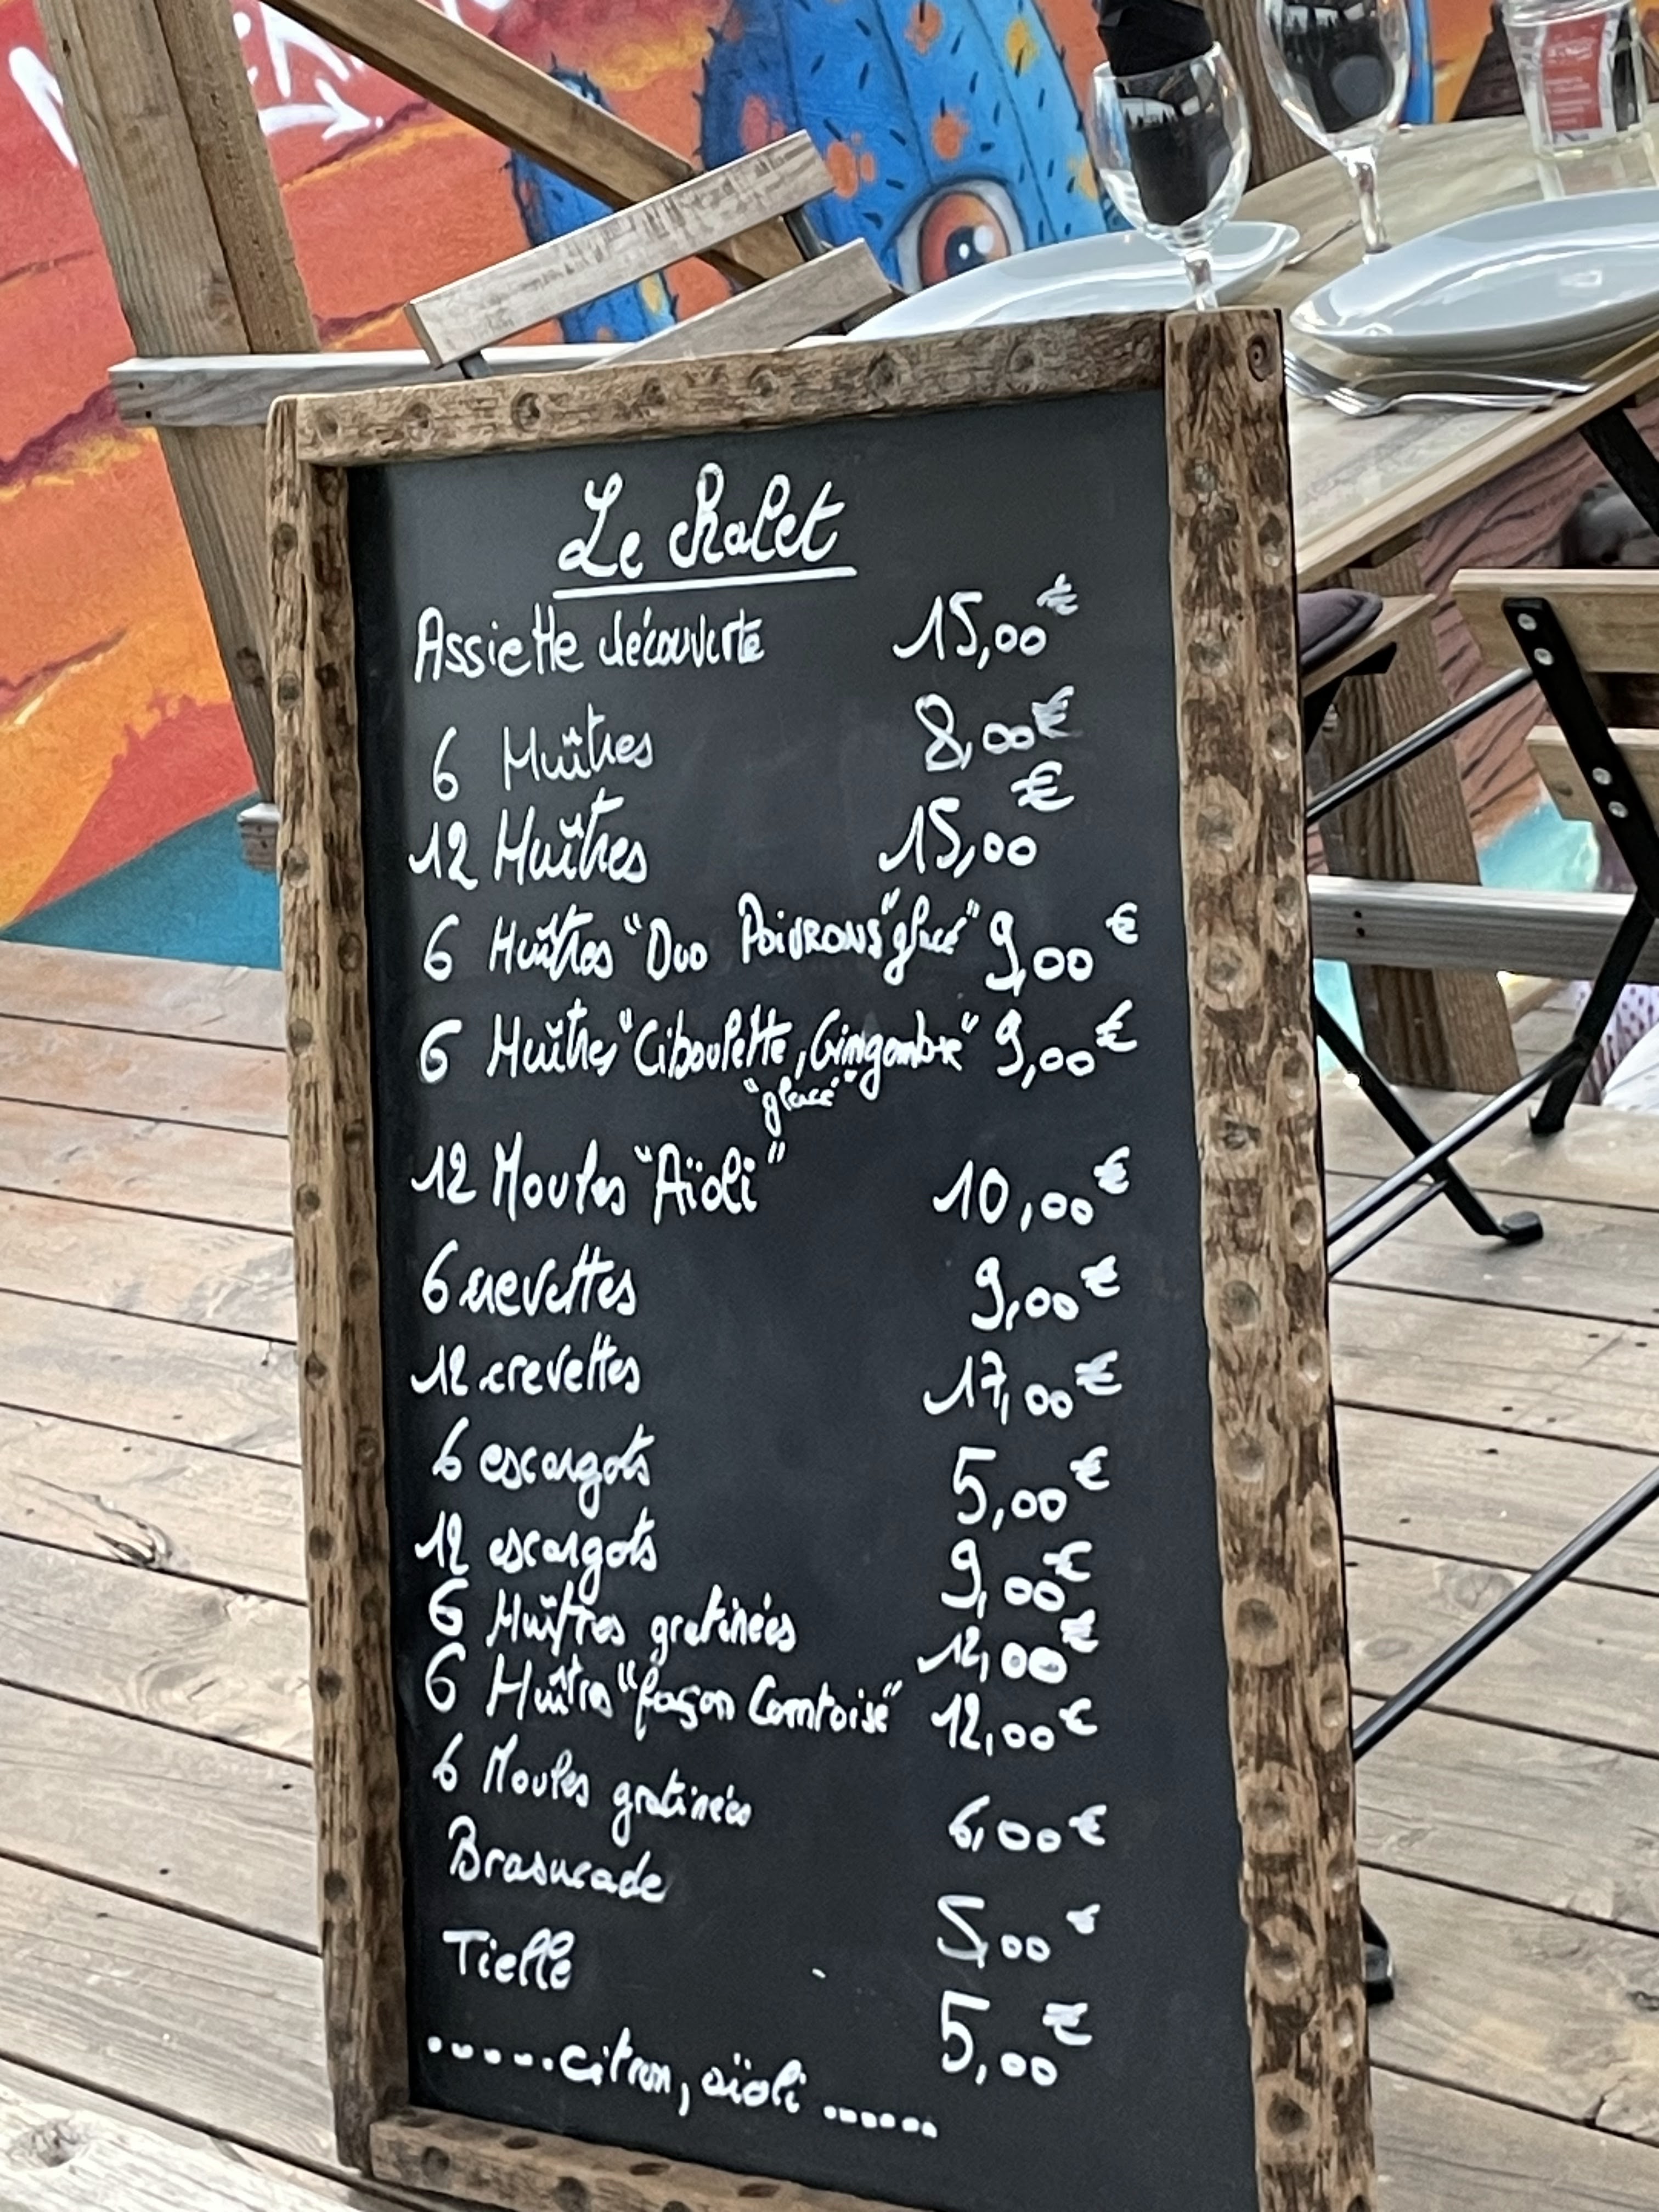 Le Chalet
Assiette découverte 15,00€
6 Huîtres 8,00€
12 Huîtres 15,00€
6 Huîtres "Duo Poivrons" glacé" 9,00€
6 Huîtres "Ciboulette, Gingembre" 9,00€
"glacé"
12 Moules "Aïoli" 10,00€
6 crevettes 9,00€
12 crevettes 17,00€
6 escargots 5,00€
12 escargots 9,00€
6 Huîtres gratinées 12,00€
6 Huîtres "façon Comtoise" 12,00€
6 Moules gratinées 6,00€
Brasucade 5,00€
Tielle 5,00€
......citron, aïoli.......